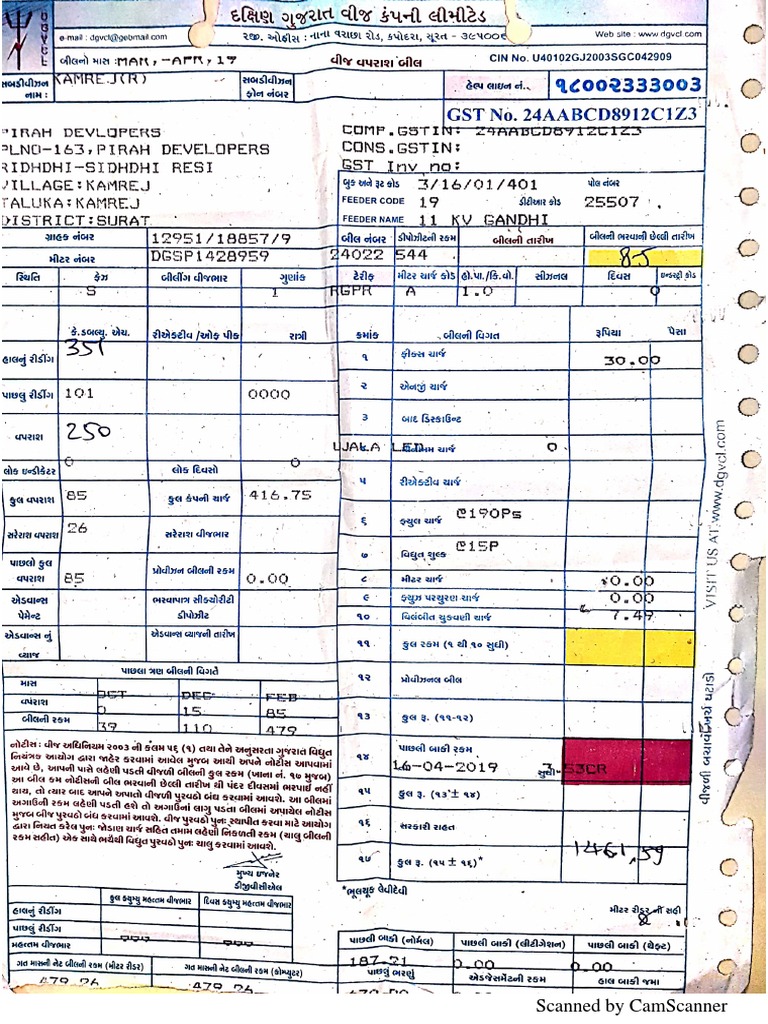 દક્ષિણ ગુજરાત વીજ કંપની લીમીટેડ
DGVCL
e-mail : dgvcl@gebmail.com
રજી. ઓફીસ : નાના વરાછા રોડ, કપોદરા, સૂરત - ૩૯૫૦૦૬
Web site : www.dgvcl.com
બીલનો માસ : MAR,-APR,19
વીજ વપરાશ બીલ
CIN No. U40102GJ2003SGC042909
સબડીવીઝન નામ : KAMREJ(R)
સબડીવીઝન ફોન નંબર
હેલ્પ લાઇન નં.
૧૮૦૦૨૩૩૩૦૦૩
GST No. 24AABCD8912C1Z3
PIRAH DEVLOPERS
PLNO-163,PIRAH DEVELOPERS
RIDHDHI-SIDHDHI RESI
VILLAGE:KAMREJ
TALUKA:KAMREJ
DISTRICT:SURAT
COMP.GSTIN: 24AABCD8912C1Z3
CONS.GSTIN:
GST Inv no:
બુક અને રૂટ કોડ 3/16/01/401 પોલ નંબર
FEEDER CODE 19 ડીટીઆર કોડ 25507
FEEDER NAME 11 KV GANDHI
ગ્રાહક નંબર 12951/18857/9
મીટર નંબર DGSP1428959
બીલ નંબર ડીપોઝીટની રકમ બીલની તારીખ બીલની ભરવાની છેલ્લી તારીખ
24022 544 8-5
સ્થિતિ ફેઝ બીલીંગ વીજભાર ગુણાંક
S 1
ટેરીફ મીટર ચાર્જ કોડ હો.પા./કિ.વો. સીઝનલ દિવસ ઇન્ડસ્ટ્રી કોડ
RGPR A 1.0 0
કે.ડબલ્યુ. એચ. રીએક્ટીવ /ઓફ પીક રાત્રી
હાલનું રીડીંગ 351
પાછલુ રીડીંગ 101 0000
વપરાશ 250
લોક ઇન્ડીકેટર 0 લોક દિવસો 0
કુલ વપરાશ 85 કુલ કંપની ચાર્જ 416.75
સરેરાશ વપરાશ 26 સરેરાશ વીજભાર
પાછલો કુલ વપરાશ 85 પ્રોવીઝન બીલની રકમ 0.00
એડવાન્સ પેમેન્ટ ભરવાપાત્ર સીક્યોરીટી ડીપોઝીટ
એડવાન્સ નું વ્યાજ એડવાન્સ વ્યાજની તારીખ
ક્રમાંક બીલની વિગત રૂપિયા પૈસા
૧ ફીક્સ ચાર્જ 30.00
૨ એનર્જી ચાર્જ
૩ બાદ ડિસ્કાઉન્ટ
UJALA LED ચાર્જ 0
૫ રીએક્ટીવ ચાર્જ
૬ ફ્યુલ ચાર્જ @190Ps
૭ વિદ્યુત શુલ્ક @15P
૮ મીટર ચાર્જ 0.00
૯ ફ્યુઝ પરચુરણ ચાર્જ 0.00
૧૦ વિલંબીત ચુકવણી ચાર્જ 7.49
૧૧ કુલ રકમ (૧ થી ૧૦ સુધી)
૧૨ પ્રોવીઝનલ બીલ
૧૩ કુલ રૂ. (૧૧-૧૨)
૧૪ પાછલી બાકી રકમ
16-04-2019 સુધી 3.53CR
૧૫ કુલ રૂ. (૧૩ ± ૧૪)
૧૬ સરકારી રાહત
૧૭ કુલ રૂ. (૧૫ ± ૧૬)* 1461,59
પાછલા ત્રણ બીલની વિગતે
માસ OCT DEC FEB
વપરાશ 0 15 85
બીલની રકમ 39 110 479
નોટીસ : વીજ અધિનિયમ ૨૦૦૩ ની કલમ ૫૬ (૧) તથા તેને અનુસરતા ગુજરાત વિદ્યુત
નિયંત્રક આયોગ દ્વારા જાહેર કરવામાં આવેલ મુજબ આથી અપને નોટીસ આપવામાં
આવે છે, આપની પાસે લહેણી પડતી વીજળી બીલની કુલ રકમ (ખાના નં. ૧૭ મુજબ)
આ બીલ કમ નોટીસની બીલ ભરવાની છેલ્લી તારીખ થી પંદર દિવસમાં ભરપાઈ નહીં
થાય, તો ત્યાર બાદ આપને અપાતો વીજળી પુરવઠો બંધ કરવામાં આવશે. આ બીલમાં
અગાઉની રકમ લહેણી પડતી હશે તો અગાઉનાં લાગુ પડતા બીલમાં અપાયેલ નોટીસ
મુજબ બીજ પુરવઠો બંધ કરવામાં આવશે. વીજ પુરવઠો પુનઃ સ્થાપીત કરવા માટે આયોગ
દ્વારા નિયત કરેલ પુનઃ જોડાણ ચાર્જ સહિત તમામ લહેણી નિકળતી રકમ (ચાલુ બીલની
રકમ સહીત) એક સાથે ભર્યેથી વિદ્યુત પુરવઠો પુનઃ ચાલુ કરવામાં આવશે.
મુખ્ય ઇજનેર
ડીજીવીસીએલ
*ભૂલચૂક લેવીદેવી
મીટર રીડર ની સહી
કુલ ક્યુમ્યુ મહત્તમ વીજભાર દિવસ ક્યુમ્યુ મહત્તમ વીજભાર
હાલનું રીડીંગ
પાછલું રીડીંગ
મહત્તમ વીજભાર
ગત માસની નેટ બીલની રકમ (મીટર રીડર) ગત માસની નેટ બીલની રકમ (કોમ્પ્યુટર)
479.26 479.26
પાછલી બાકી (નોર્મલ) પાછલી બાકી (લીટીગેશન) પાછલી બાકી (થેફ્ટ)
187.21 0.00 0.00
પાછલું ભરણું એડજેસ્ટમેંટની રકમ હાલ બાકી જમા
VISIT US AT www.dgvcl.com
વીજળી બચાવો ખર્ચ ઘટાડો
Scanned by CamScanner